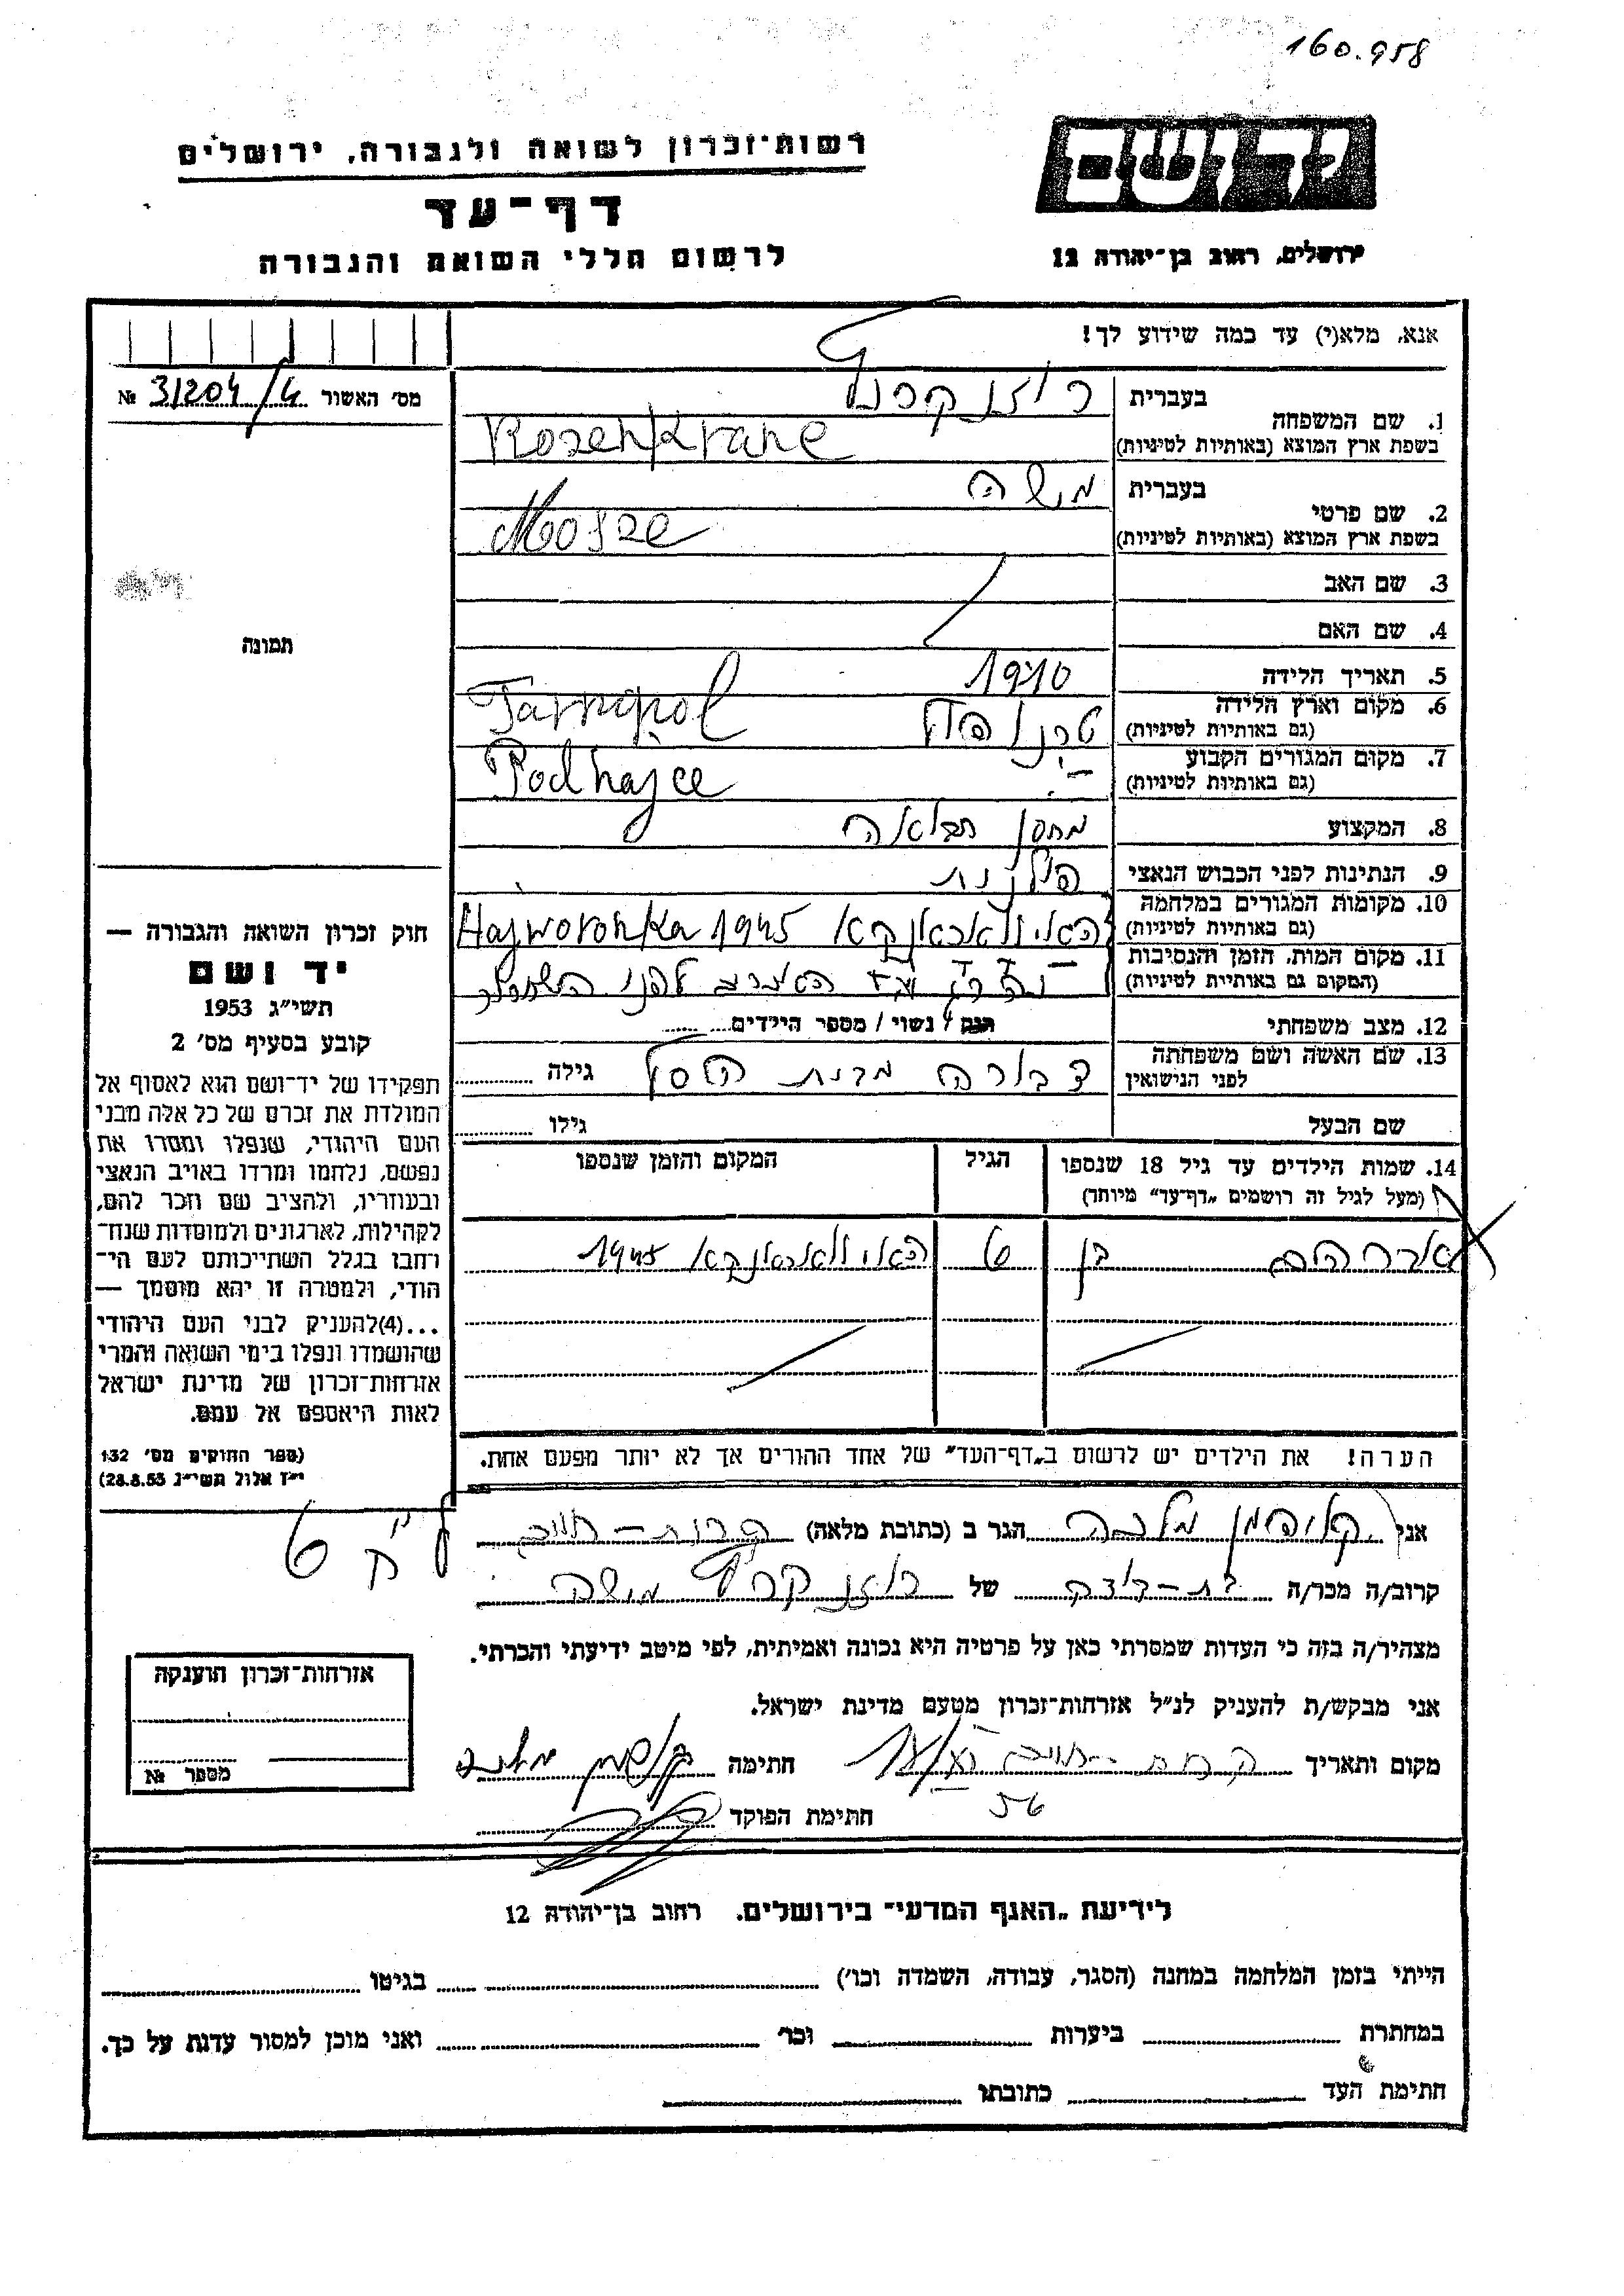 160.958
יד ושם
רשות־זכרון לשואה ולגבורה, ירושלים
דף־עד
לרשום חללי השואה והגבורה
ירושלים, רחוב בן־יהודה 12
אנא, מלא(י) עד כמה שידוע לך!
מס׳ האשור 31204/4 №
1. שם המשפחה
בעברית רוזנקרנץ
בשפת ארץ המוצא (באותיות לטיניות) Rosenkranc
2. שם פרטי
בעברית משה
בשפת ארץ המוצא (באותיות לטיניות) Mosze
3. שם האב
4. שם האם
5. תאריך הלידה 1910
6. מקום וארץ הלידה
(גם באותיות לטיניות) טרנופול Tarnopol
7. מקום המגורים הקבוע
(גם באותיות לטיניות) Podhajce
8. המקצוע מחסן תבואה
9. הנתינות לפני הכבוש הנאצי פולנית
10. מקומות המגורים במלחמה
(גם באותיות לטיניות) האיוואראנקא 1945 Hajworonka
11. מקום המות, הזמן והנסיבות
(המקום גם באותיות לטיניות) נהרג לפני השחרור
12. מצב משפחתי רווק / נשוי / מספר הילדים
13. שם האשה ושם משפחתה
לפני הנישואין דבורה מבית גילה
שם הבעל גילו
14. שמות הילדים עד גיל 18 שנספו
(מעל לגיל זה רושמים „דף־עד״ מיוחד)
הגיל
המקום והזמן שנספו
אברהם בן 6 האיוואראנקא 1945
הערה! את הילדים יש לרשום ב„דף־העד״ של אחד ההורים אך לא יותר מפעם אחת.
תמונה
חוק זכרון השואה והגבורה —
יד ושם
תשי״ג 1953
קובע בסעיף מס׳ 2
תפקידו של יד־ושם הוא לאסוף אל
המולדת את זכרם של כל אלה מבני
העם היהודי, שנפלו ומסרו את
נפשם, נלחמו ומרדו באויב הנאצי
ובעוזריו, ולהציב שם וזכר להם,
לקהילות, לארגונים ולמוסדות שנח־
רחבו בגלל השתייכותם לעם הי־
הודי, ולמטרה זו יהא מוסמך —
...(4)להעניק לבני העם היהודי
שהושמדו ונפלו בימי השואה והמרי
אזרחות־זכרון של מדינת ישראל
לאות היאספם אל עמם.
(ספר החוקים מס׳ 132
י״ז אלול תשי״ג 28.8.53)
אני קליפמן מלכה הגר ב (כתובת מלאה)
קרוב/ה מכר/ה בת-דודה של רוזנקרנץ משה
מצהיר/ה בזה כי העדות שמסרתי כאן על פרטיה היא נכונה ואמיתית, לפי מיטב ידיעתי והכרתי.
אני מבקש/ת להעניק לנ״ל אזרחות־זכרון מטעם מדינת ישראל.
מקום ותאריך 56 חתימה
חתימת הפוקד
אזרחות־זכרון הוענקה
מספר №
לידיעת „האגף המדעי״ בירושלים. רחוב בן־יהודה 12
הייתי בזמן המלחמה במחנה (הסגר, עבודה, השמדה וכו׳) בגיטו
במחתרת ביערות וכו׳ ואני מוכן למסור עדות על כך.
חתימת העד כתובתו